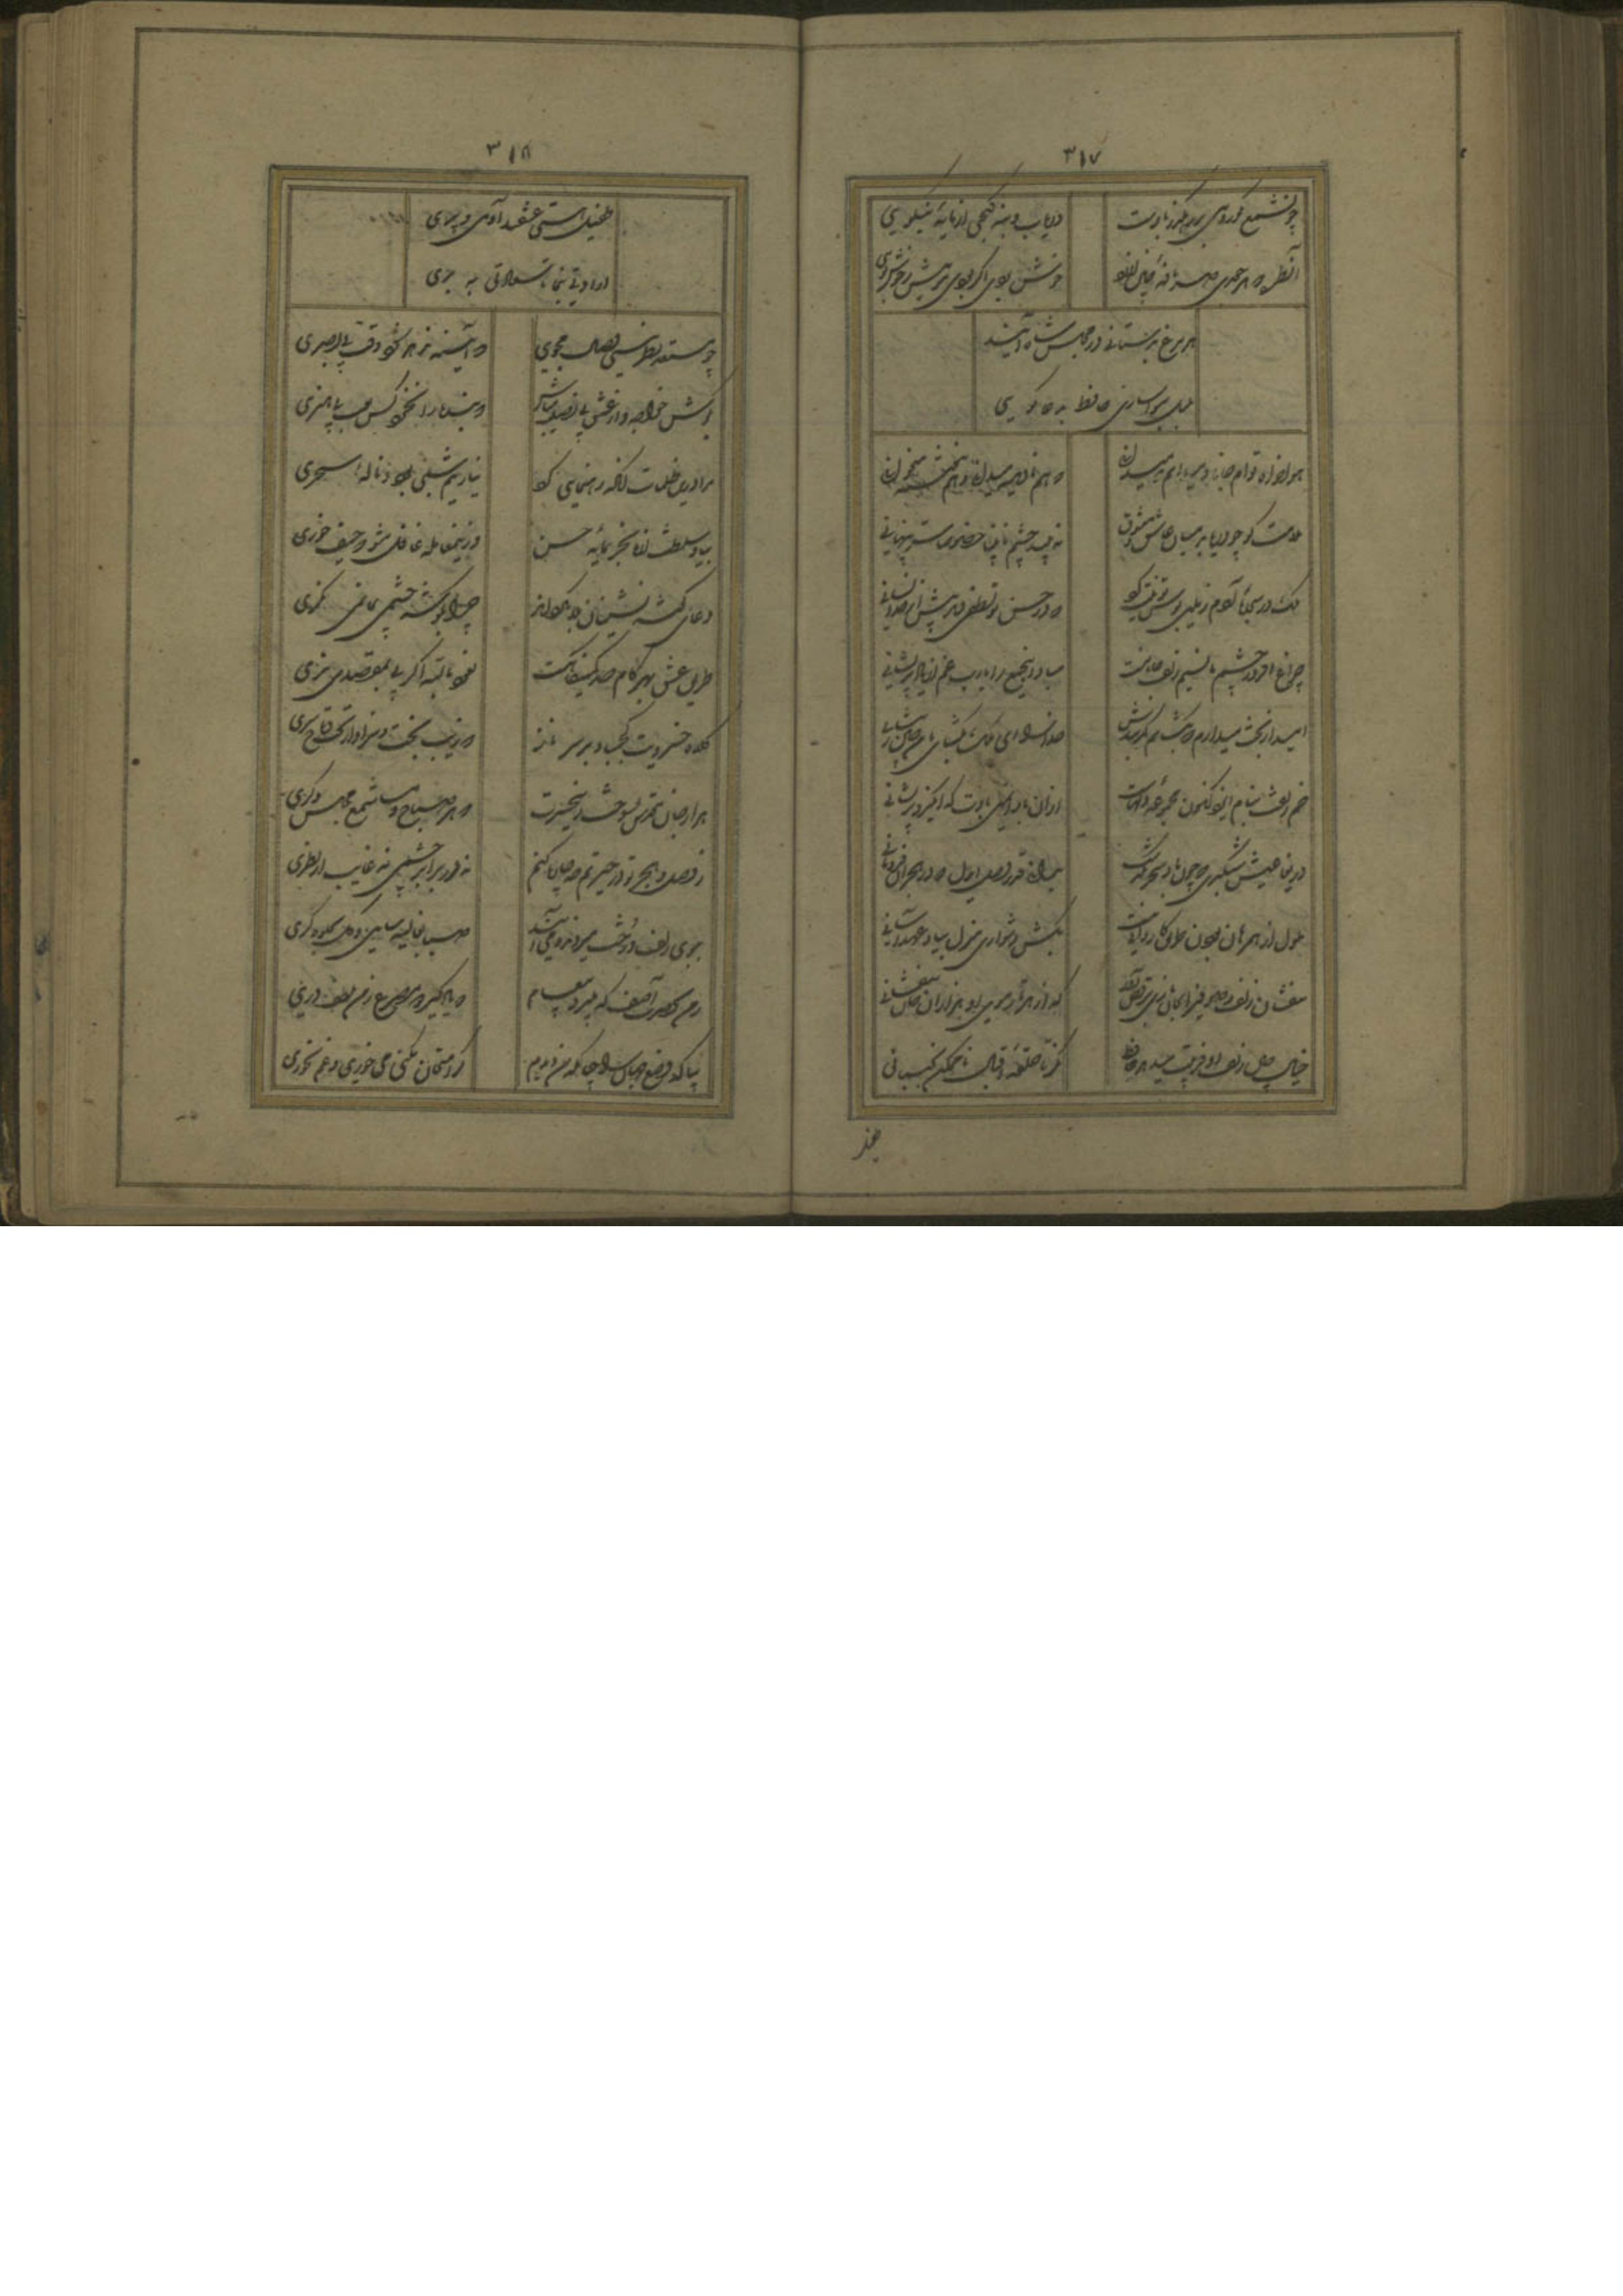 ۳۱۷
چون شمع نکورویی در رهگذر بادست
دریاب و بنه گنجی از مایهٔ نیکویی
آن طره که هر جعدی صد نافهٔ چین ارزد
خوش بودی اگر بودی بوییش ز خوش خویی
هر مرغ به دستانی در مجلس شاه آیند
بلبل به نواسازی حافظ به دعاگویی
هواخواه توام جانا و میدانم که میدانی
که هم نادیده میدانی و هم ننوشته میخوانی
ملامت گو چه دریابد میان عاشق و معشوق
نه بیند چشم نابینا خصوص اسرار پنهانی
ملک در سجدهٔ آدم زمین بوس تو نیت کرد
که در حسن تو لطفی دید بیش از حد انسانی
چراغ افروز چشم ما نسیم زلف جانانست
مباد این جمع را یارب غم از باد پریشانی
امید از بخت میدارم که بگشایم کمربندش
خدا را ای فلک بگشای
خم زلفت بنام ایزد کنون مجموعه دلهاست
از آن باد ایمنی بادت که انگیزد پریشانی
دریغا عیش شبگیری که چون باد سحر بگذشت
بدانی قدر وصل ایدل که در هجران فرومانی
ملول از همرهان بودن طریق کاردانی نیست
بکش دشواری منزل بیاد عهد آسانی
بیفشان زلف و صوفی را بپابازی و رقص آور
که از هر رقعهٔ دلقش هزاران بت بیفشانی
خیال چنبر زلفش فریبت میدهد حافظ
نگر تا حلقهٔ اقبال ناممکن نجنبانی
طفیل
۳۱۸
طفیل هستی عشقند آدمی و پری
ارادتی بنما تا سعادتی ببری
چو مستعد نظر نیستی وصال مجوی
که آیینه ندهد سود وقت بی بصری
بکوش خواجه و از عشق بی نصیب مباش
که بنده را نخرد کس به عیب بی هنری
مرا درین ظلمات آنکه رهنمایی کرد
نیاز نیم شبی بود و نالهٔ سحری
بیا و سلطنت از ما بخر بمایهٔ حسن
وزین معامله غافل مشو که حیف خوری
دعای گوشه نشینان بلا بگرداند
چرا بگوشه چشمی بما نمی نگری
طریق عشق بهر گام صد کمینگاهست
نعوذ بالله اگر ره بمقصدی نبری
کلاه خسرویت کج مباد بر سر ناز
که زیب بخت و سزاوار تخت و تاج سری
هزار جان مقدس بسوخت زین غیرت
که هر صباح و مسا شمع مجلس دگری
ز وصل و هجر تو در حیرتم چه چاره کنم
نه در برابر چشمی نه غایب از نظری
ببوی زلف و رخت میروند و می آیند
صبا بغالیه سایی و گل بجلوه گری
ز من بحضرت آصف که میبرد پیغام
که یاد گیر دو مصرع ز من بنظم دری
بیا که وضع جهان را چنانکه من دیدم
گر امتحان بکنی می خوری و غم نخوری